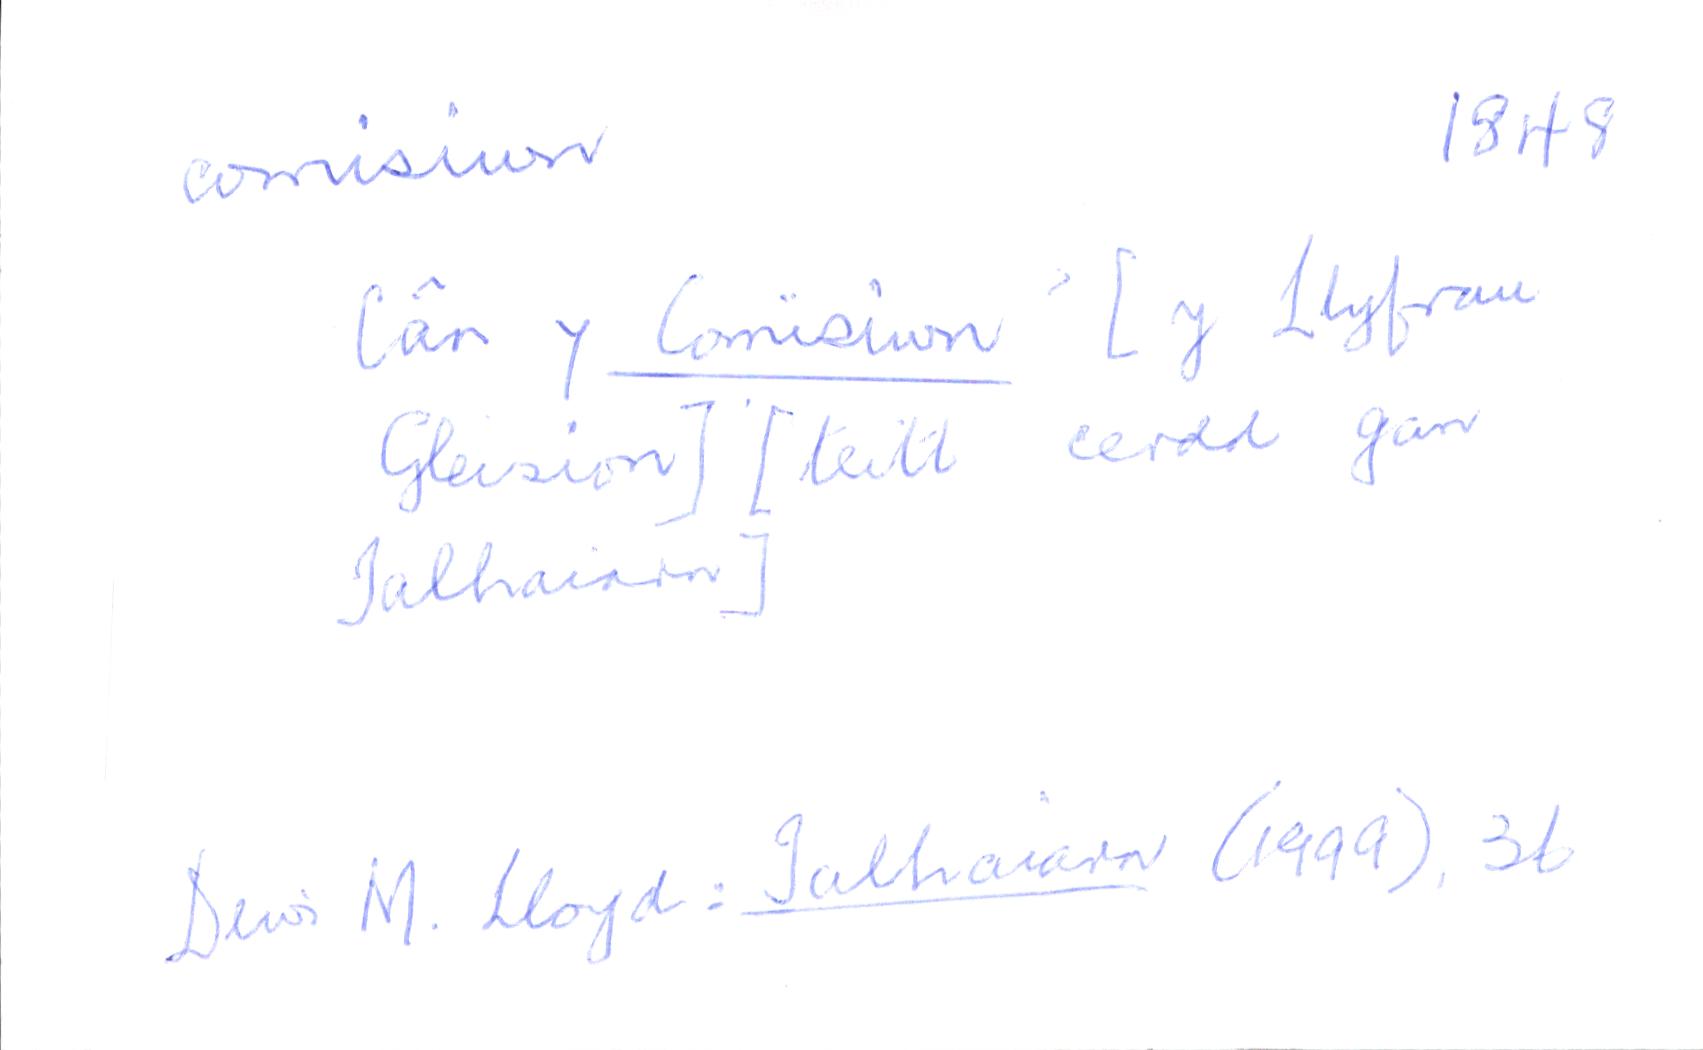 comisiwn 1848
Cân y Comisiwn' [y Llyfrau
Gleision] [teitl cerdd gan
Talhaiarn]
Dewi M. Lloyd: Talhaiarn (1999), 36